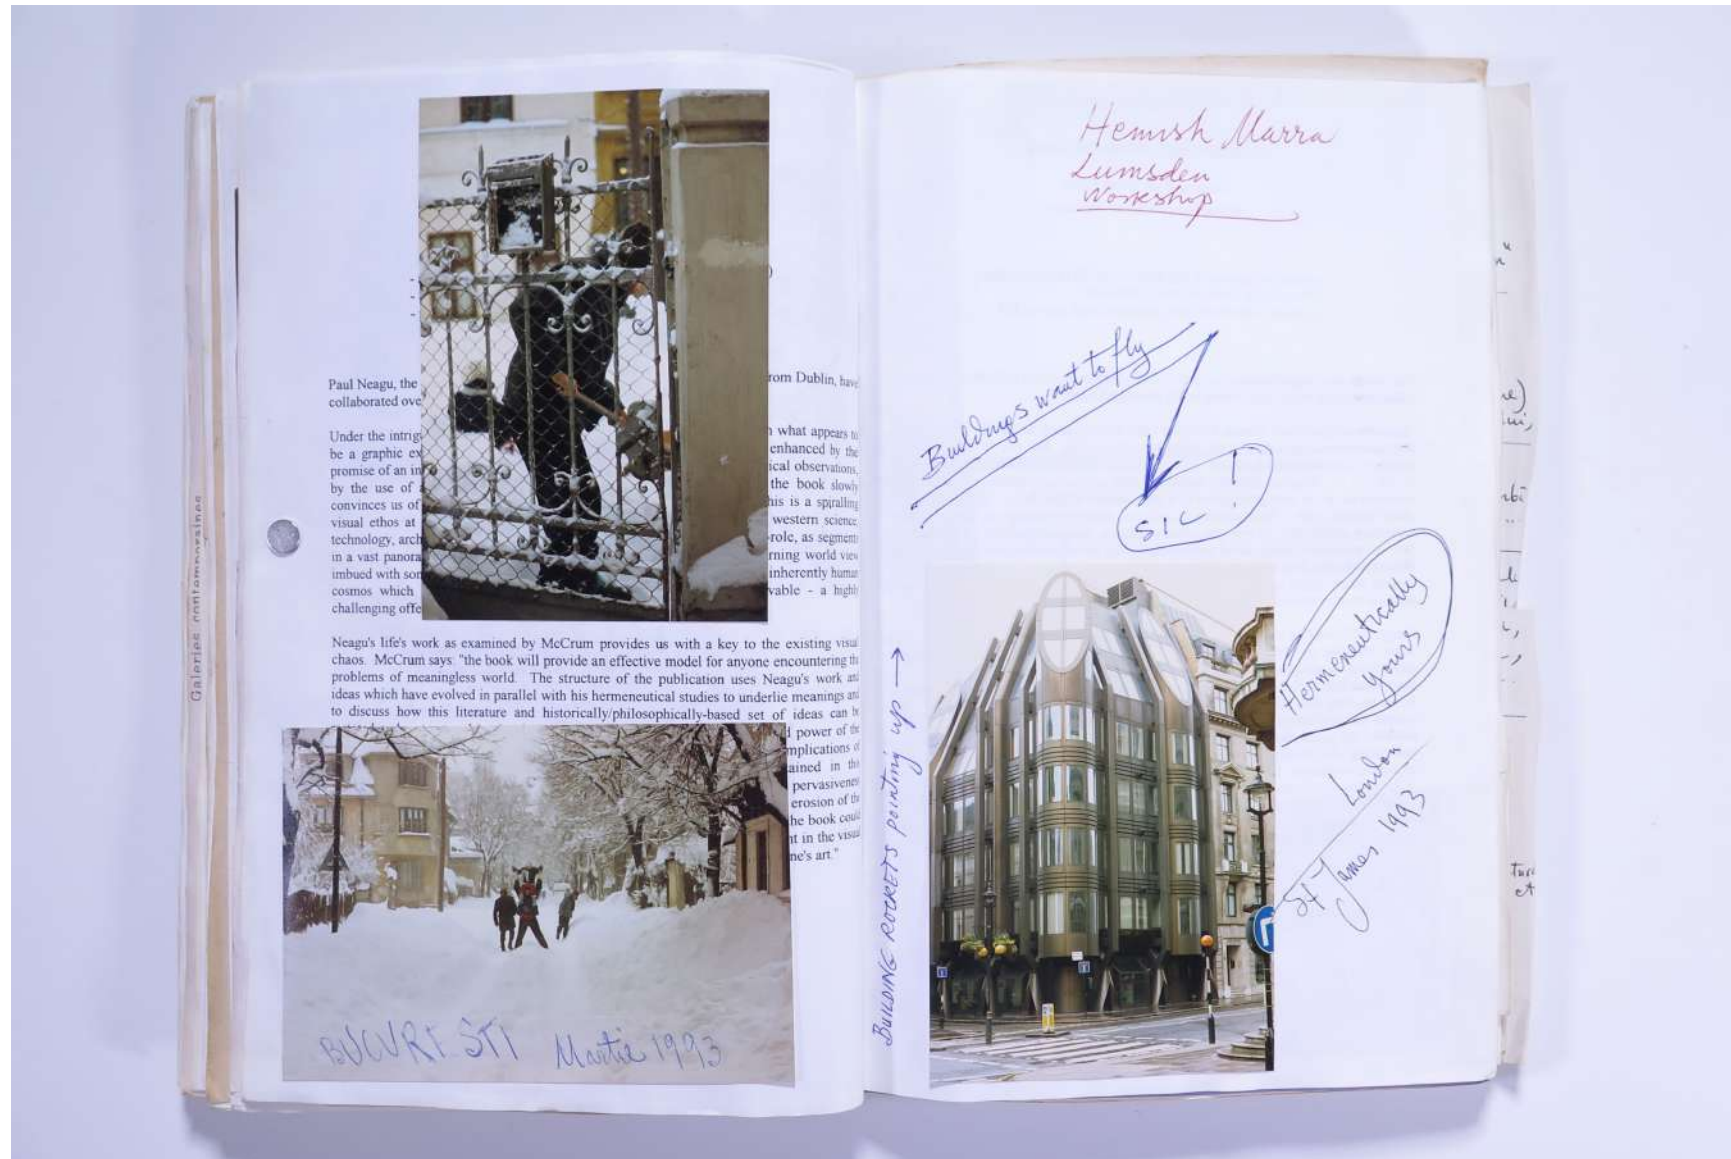 Galeries contemporaines
Paul Neagu, the
rom Dublin, have
collaborated ove
Under the intrig
n what appears to
be a graphic ex
enhanced by the
promise of an in
ical observations,
by the use of
the book slowly
convinces us of
his is a spiralling
visual ethos at
western science,
technology, arch
-role, as segment
in a vast panora
rning world view
imbued with sor
inherently human
cosmos which
vable - a highly
challenging offe
Neagu's life's work as examined by McCrum provides us with a key to the existing visual
chaos. McCrum says: "the book will provide an effective model for anyone encountering the
problems of meaningless world. The structure of the publication uses Neagu's work and
ideas which have evolved in parallel with his hermeneutical studies to underlie meanings and
to discuss how this literature and historically/philosophically-based set of ideas can be
d power of the
mplications of
ained in the
pervasiveness
erosion of the
he book could
nt in the visual
ne's art."
BUCUREȘTI Martie 1993
Hemish Marra
Lumsden
Workshop
Buildings want to fly
SIC!
BUILDING ROCKETS pointing up →
Hermeneutically
Yours
London
St James 1993